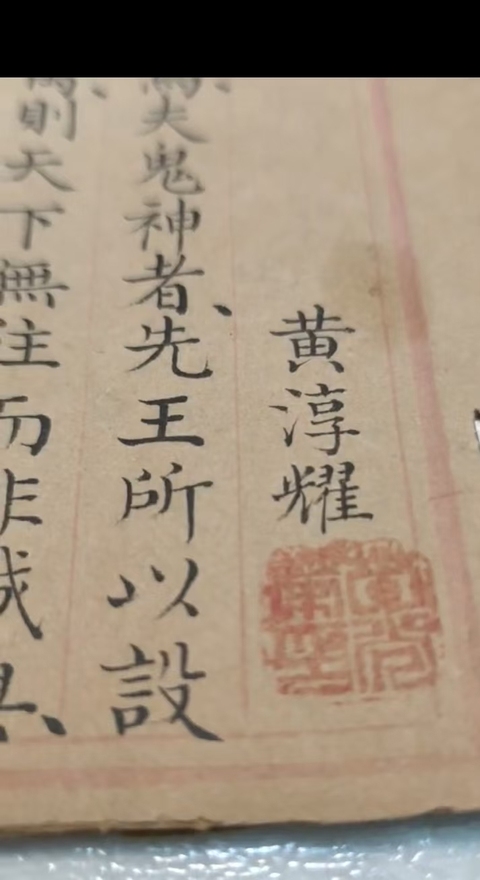 黄淳耀
夫鬼神者、先王所以設
則天下無往而非誠矣、